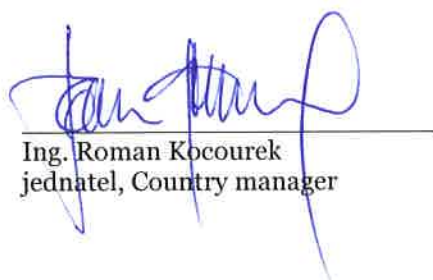 Ing. Roman Kocourek
jednatel, Country manager